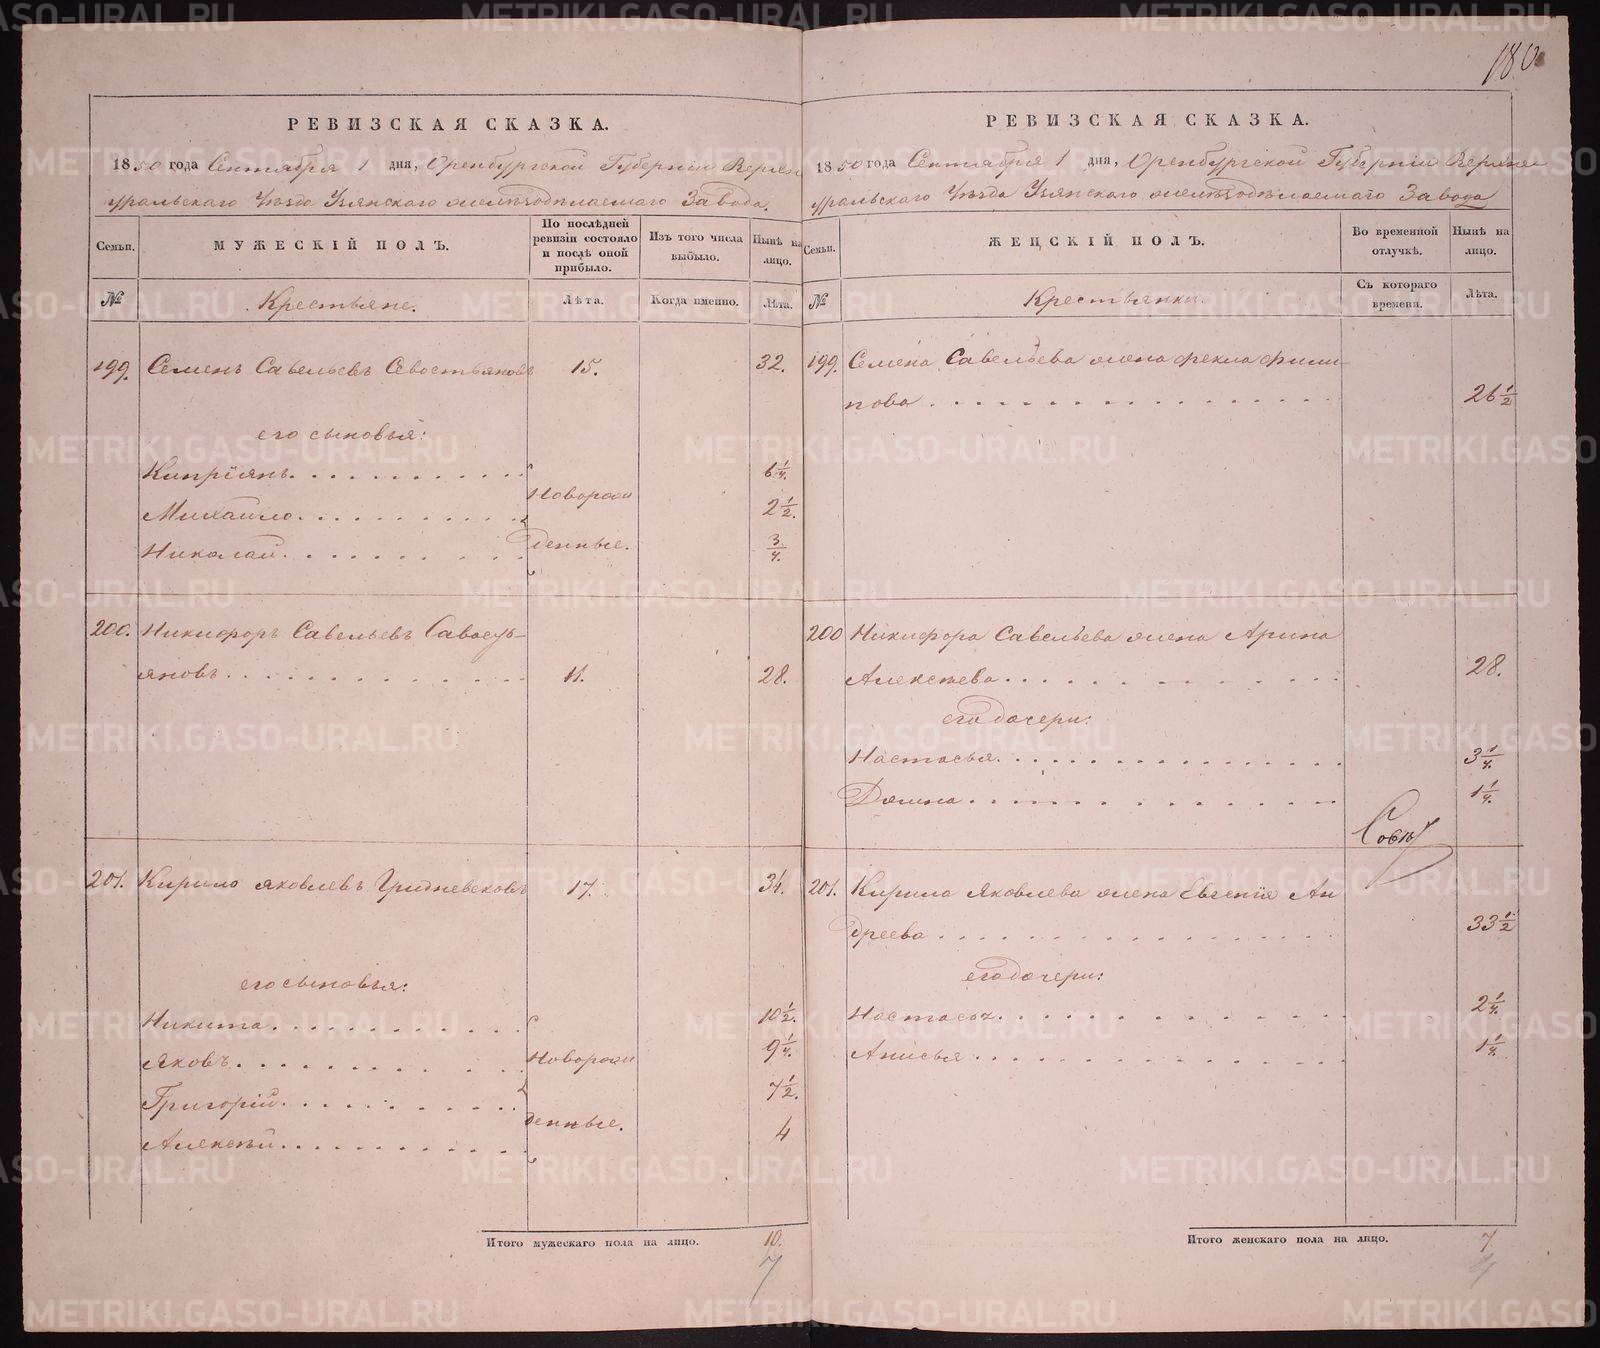 180.
РЕВИЗСКАЯ СКАЗКА.
1850 года Сентября 1 дня, Оренбургской Губернiи Верхне
уральскаго Уѣзда Узянскаго желѣзодѣлаемаго Завода.
Семьи.
МУЖЕСКIЙ ПОЛЪ.
По послѣдней
ревизiи состояло
и послѣ оной
прибыло.
Изъ того числа
выбыло.
Нынѣ на
лицо.
№
Крестьяне.
Лѣта.
Когда именно.
Лѣта.
199. Семенъ Савельевъ Севостьяновъ 15. 32.
его сыновья:
Кипрiянъ. 6 1/4.
Новорож
Михайло. 2 1/2.
денные.
Николай. 3/4.
200. Никифоръ Савельевъ Савость-
яновъ. 11. 28.
201. Кирило Яковлевъ Гридневсковъ 17. 34.
его сыновья:
Никита. 10 1/2.
Яковъ. Новорож 9 1/4.
Григорiй. 7 1/2.
денные.
Алексѣй. 4
Итого мужескаго пола на лицо. 10.
7
РЕВИЗСКАЯ СКАЗКА.
1850 года Сентября 1 дня, Оренбургской Губернiи Верхне
уральскаго Уѣзда Узянскаго желѣзодѣлаемаго Завода
Семьи.
ЖЕНСКIЙ ПОЛЪ.
Во временной
отлучкѣ.
Нынѣ на
лицо.
№
Крестьянки.
Съ котораго
времени.
Лѣта.
199. Семена Савельева жена Фекла Фили
пова 26 1/2
200 Никифора Савельева жена Арина
Алексѣева. 28.
его дочери:
Настасья. 3 1/4.
Домна. 1 1/4.
201. Кирила Яковлева жена Евгенiя Ан
дреева 33 1/2
его дочери:
Настасья. 2 1/4.
Анисья 1 1/4.
Итого женскаго пола на лицо. 7
METRIKI.GASO-URAL.RU